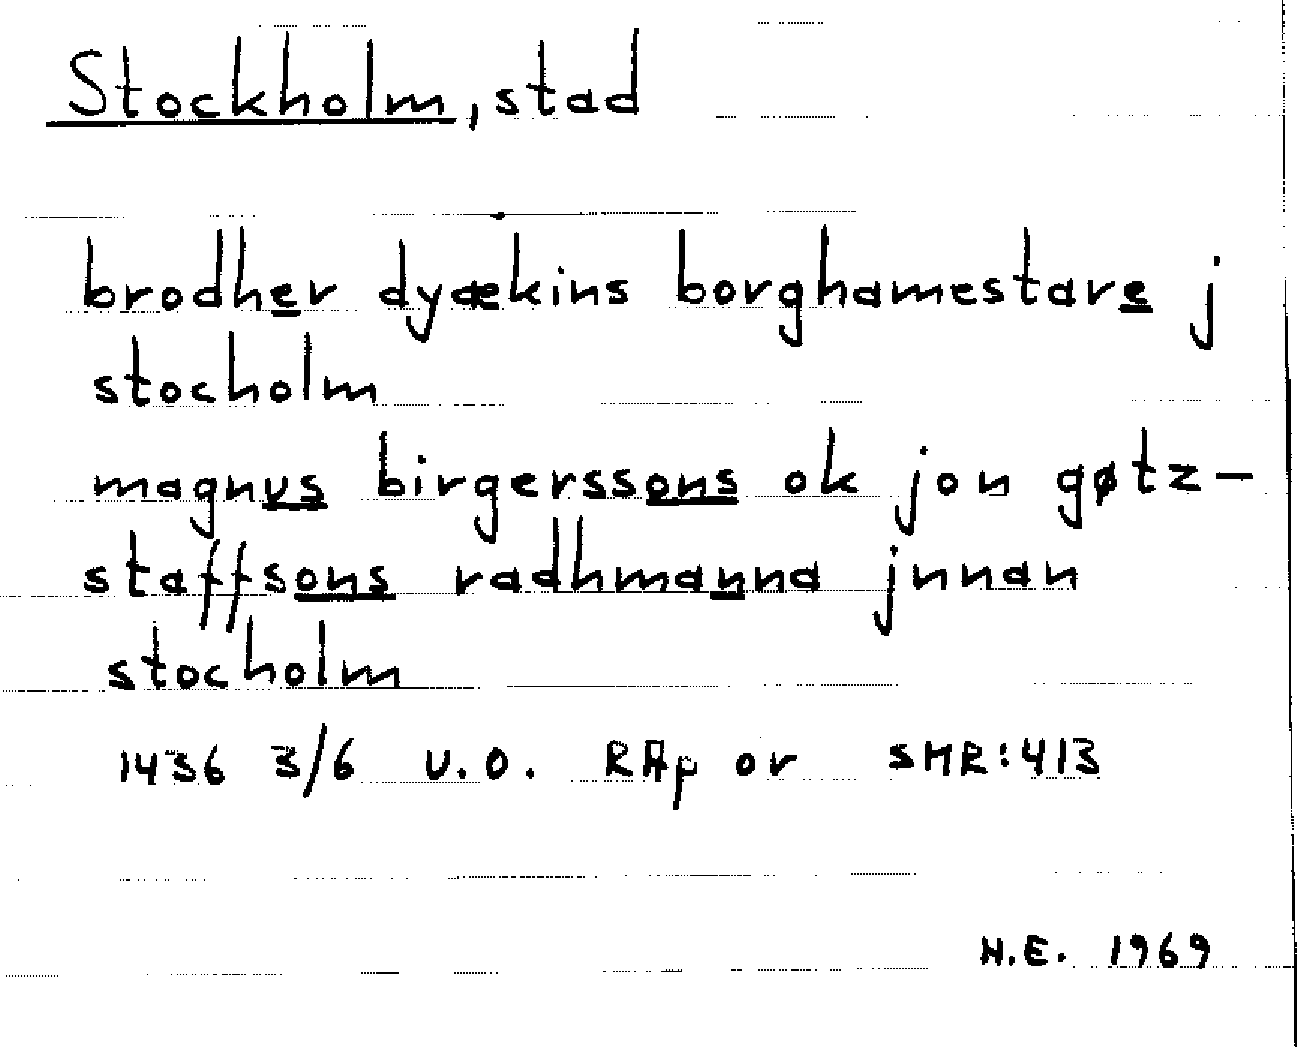 Stockholm, stad
brodher dyækins borghamestare j
stocholm
magnus birgerssons ok jon gøtz-
staffsons radhmanna jnnan
stocholm
1436 3/6 u.o. RAp or SMR:413
H.E. 1969